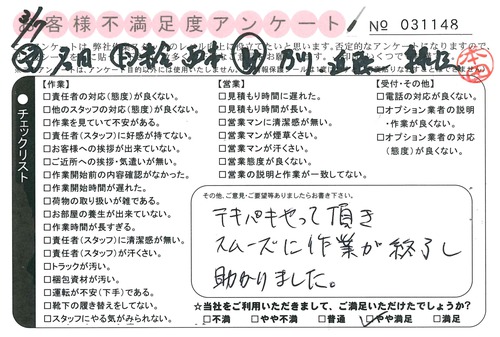 お客様不満足度アンケート
No 031148
【作業】
□責任者の対応(態度)が良くない。
□他のスタッフの対応(態度)が良くない。
□作業を見ていて不安がある。
□責任者(スタッフ)に好感が持てない。
□お客様への挨拶が出来ていない。
□ご近所への挨拶・気遣いが無い。
□作業開始前の内容確認がなかった。
□作業開始時間が遅れた。
□荷物の取り扱いが雑である。
□お部屋の養生が出来ていない。
□作業時間が長すぎる。
□責任者(スタッフ)に清潔感が無い。
□責任者(スタッフ)が汗くさい。
□トラックが汚い。
□梱包資材が汚い。
□運転が不安(下手)である。
□靴下の履き替えをしてない。
□スタッフにやる気がみられない。
【営業】
□見積もり時間に遅れた。
□見積もり時間が長い。
□営業マンに清潔感が無い。
□営業マンが煙草くさい。
□営業マンが汗くさい。
□営業態度が良くない。
□営業の説明と作業が一致してない。
【受付・その他】
□電話の対応が良くない。
□オプション業者の説明
・作業が良くない。
□オプション業者の対応
(態度)が良くない。
チェックリスト
その他、ご意見・ご要望等ありましたらお書き下さい。
テキパキやって頂き
スムーズに作業が終了し
助かりました。
☆当社をご利用いただきまして、ご満足いただけたでしょうか?
□不満 □やや不満 □普通 □やや満足 □満足